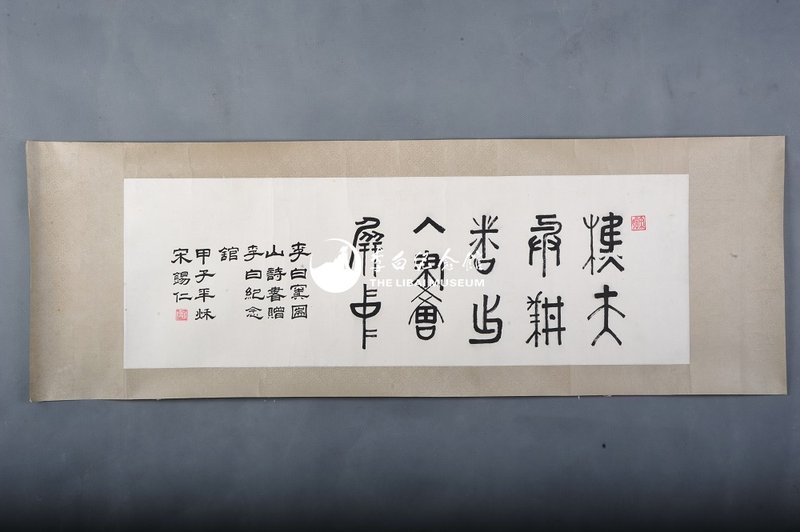 樵夫
與耕
者出
入畫
屏中
李白竇圌
山詩書贈
李白紀念
館
甲子年秋
宋錫仁
李白纪念馆
THE LIBAI MUSEUM